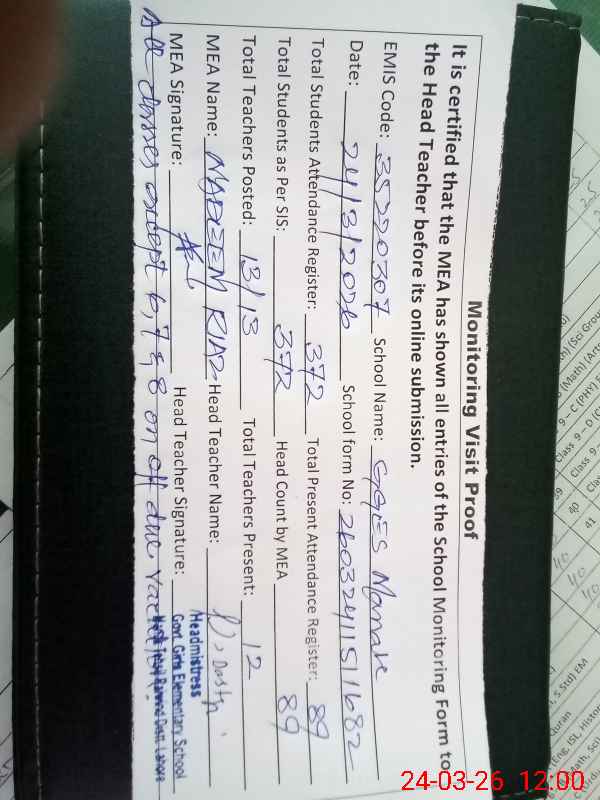 Monitoring Visit Proof
It is certified that the MEA has shown all entries of the School Monitoring Form to
the Head Teacher before its online submission.
EMIS Code: 35220307 School Name: GGES Manak
Date: 24/3/2026 School form No: 26032411511682
Total Students Attendance Register: 372 Total Present Attendance Register: 89
Total Students as Per SIS: 372 Head Count by MEA 89
Total Teachers Posted: 13/13 Total Teachers Present: 12
MEA Name: NADEEM RIAZ Head Teacher Name:
MEA Signature: Head Teacher Signature:
Headmistress
Govt. Girls Elementary School
All classes except 6,7 & 8 on off due
24-03-26 12:00